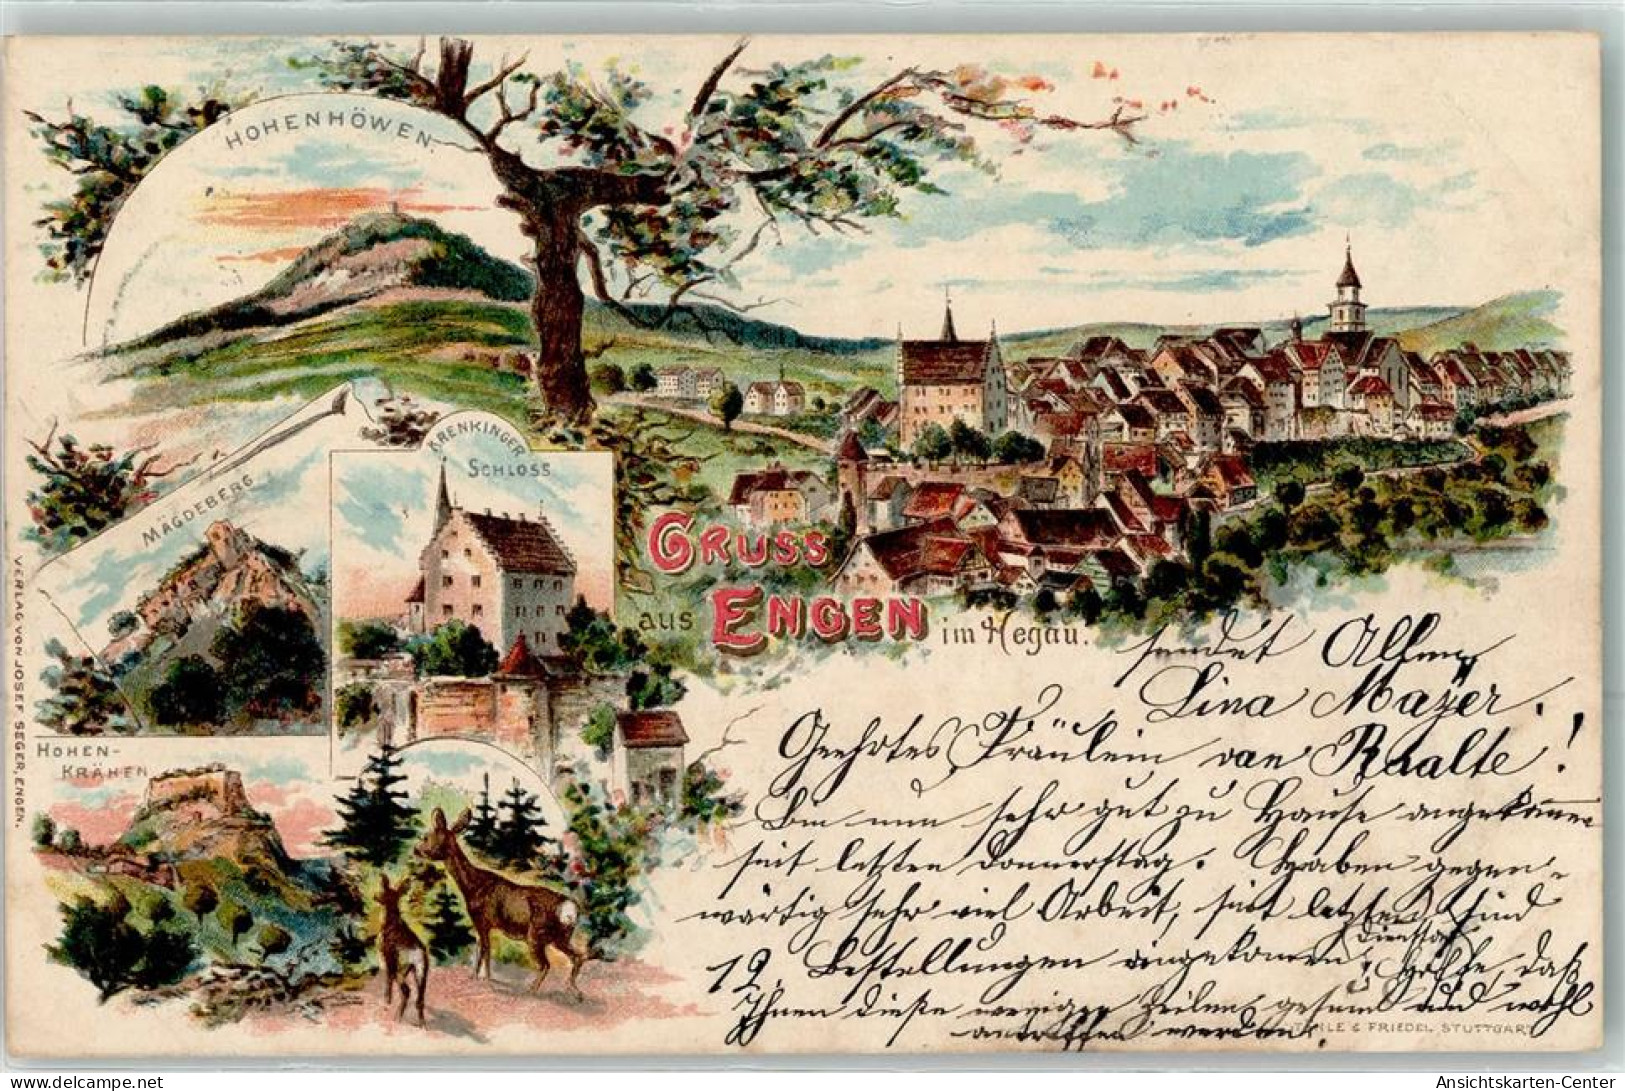 HOHENHÖWEN.
MÄGDEBERG
KRENKINGER
SCHLOSS
HOHEN-
KRÄHEN
GRUSS
aus ENGEN im Hegau.
VERLAG VON JOSEF SEGER, ENGEN.
sendet Allen
Lina Mayer.
Geehrtes Fräulein van Raalte!
Bin nun sehr gut zu Hause angekommen
seit letzten Donnerstag. Haben gegen-
wärtig sehr viel Arbeit, seit letzten Dienstag sind
12 Bestellungen angekommen. Hoffe, daß
Ihnen diese weniger Zeilen gesund und wohl
antreffen werden.
& FRIEDEL STUTTGART
delcampe.net
Ansichtskarten-Center